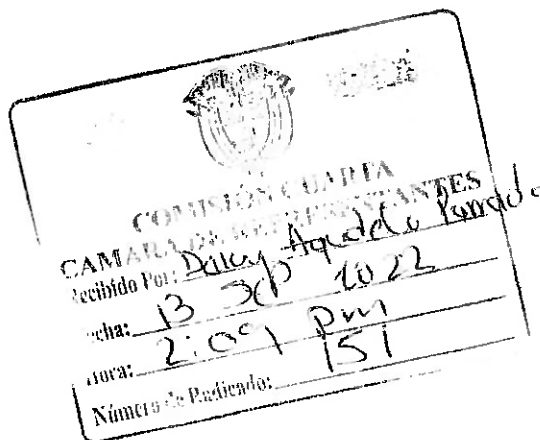 COMISIÓN CUARTA
CAMARA DE REPRESENTANTES
Recibido Por: Dalay Agudelo Parrado
Fecha: 13 Sep 2022
Hora: 2:09 pm
Número de Radicado: 151